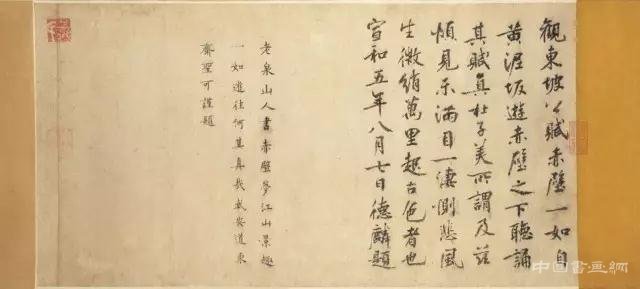 觀東坡公賦赤壁一如自
黃泥坂遊赤壁之下聽誦
其賦真杜子美所謂及茲
煩見示滿目一淒惻悲風
生微綃萬里起古色者也
宣和五年八月七日德麟題
老泉山人書赤壁夢江山景趣
一如遊往何其真哉武安道東
齋聖可謹題
中国書畫網